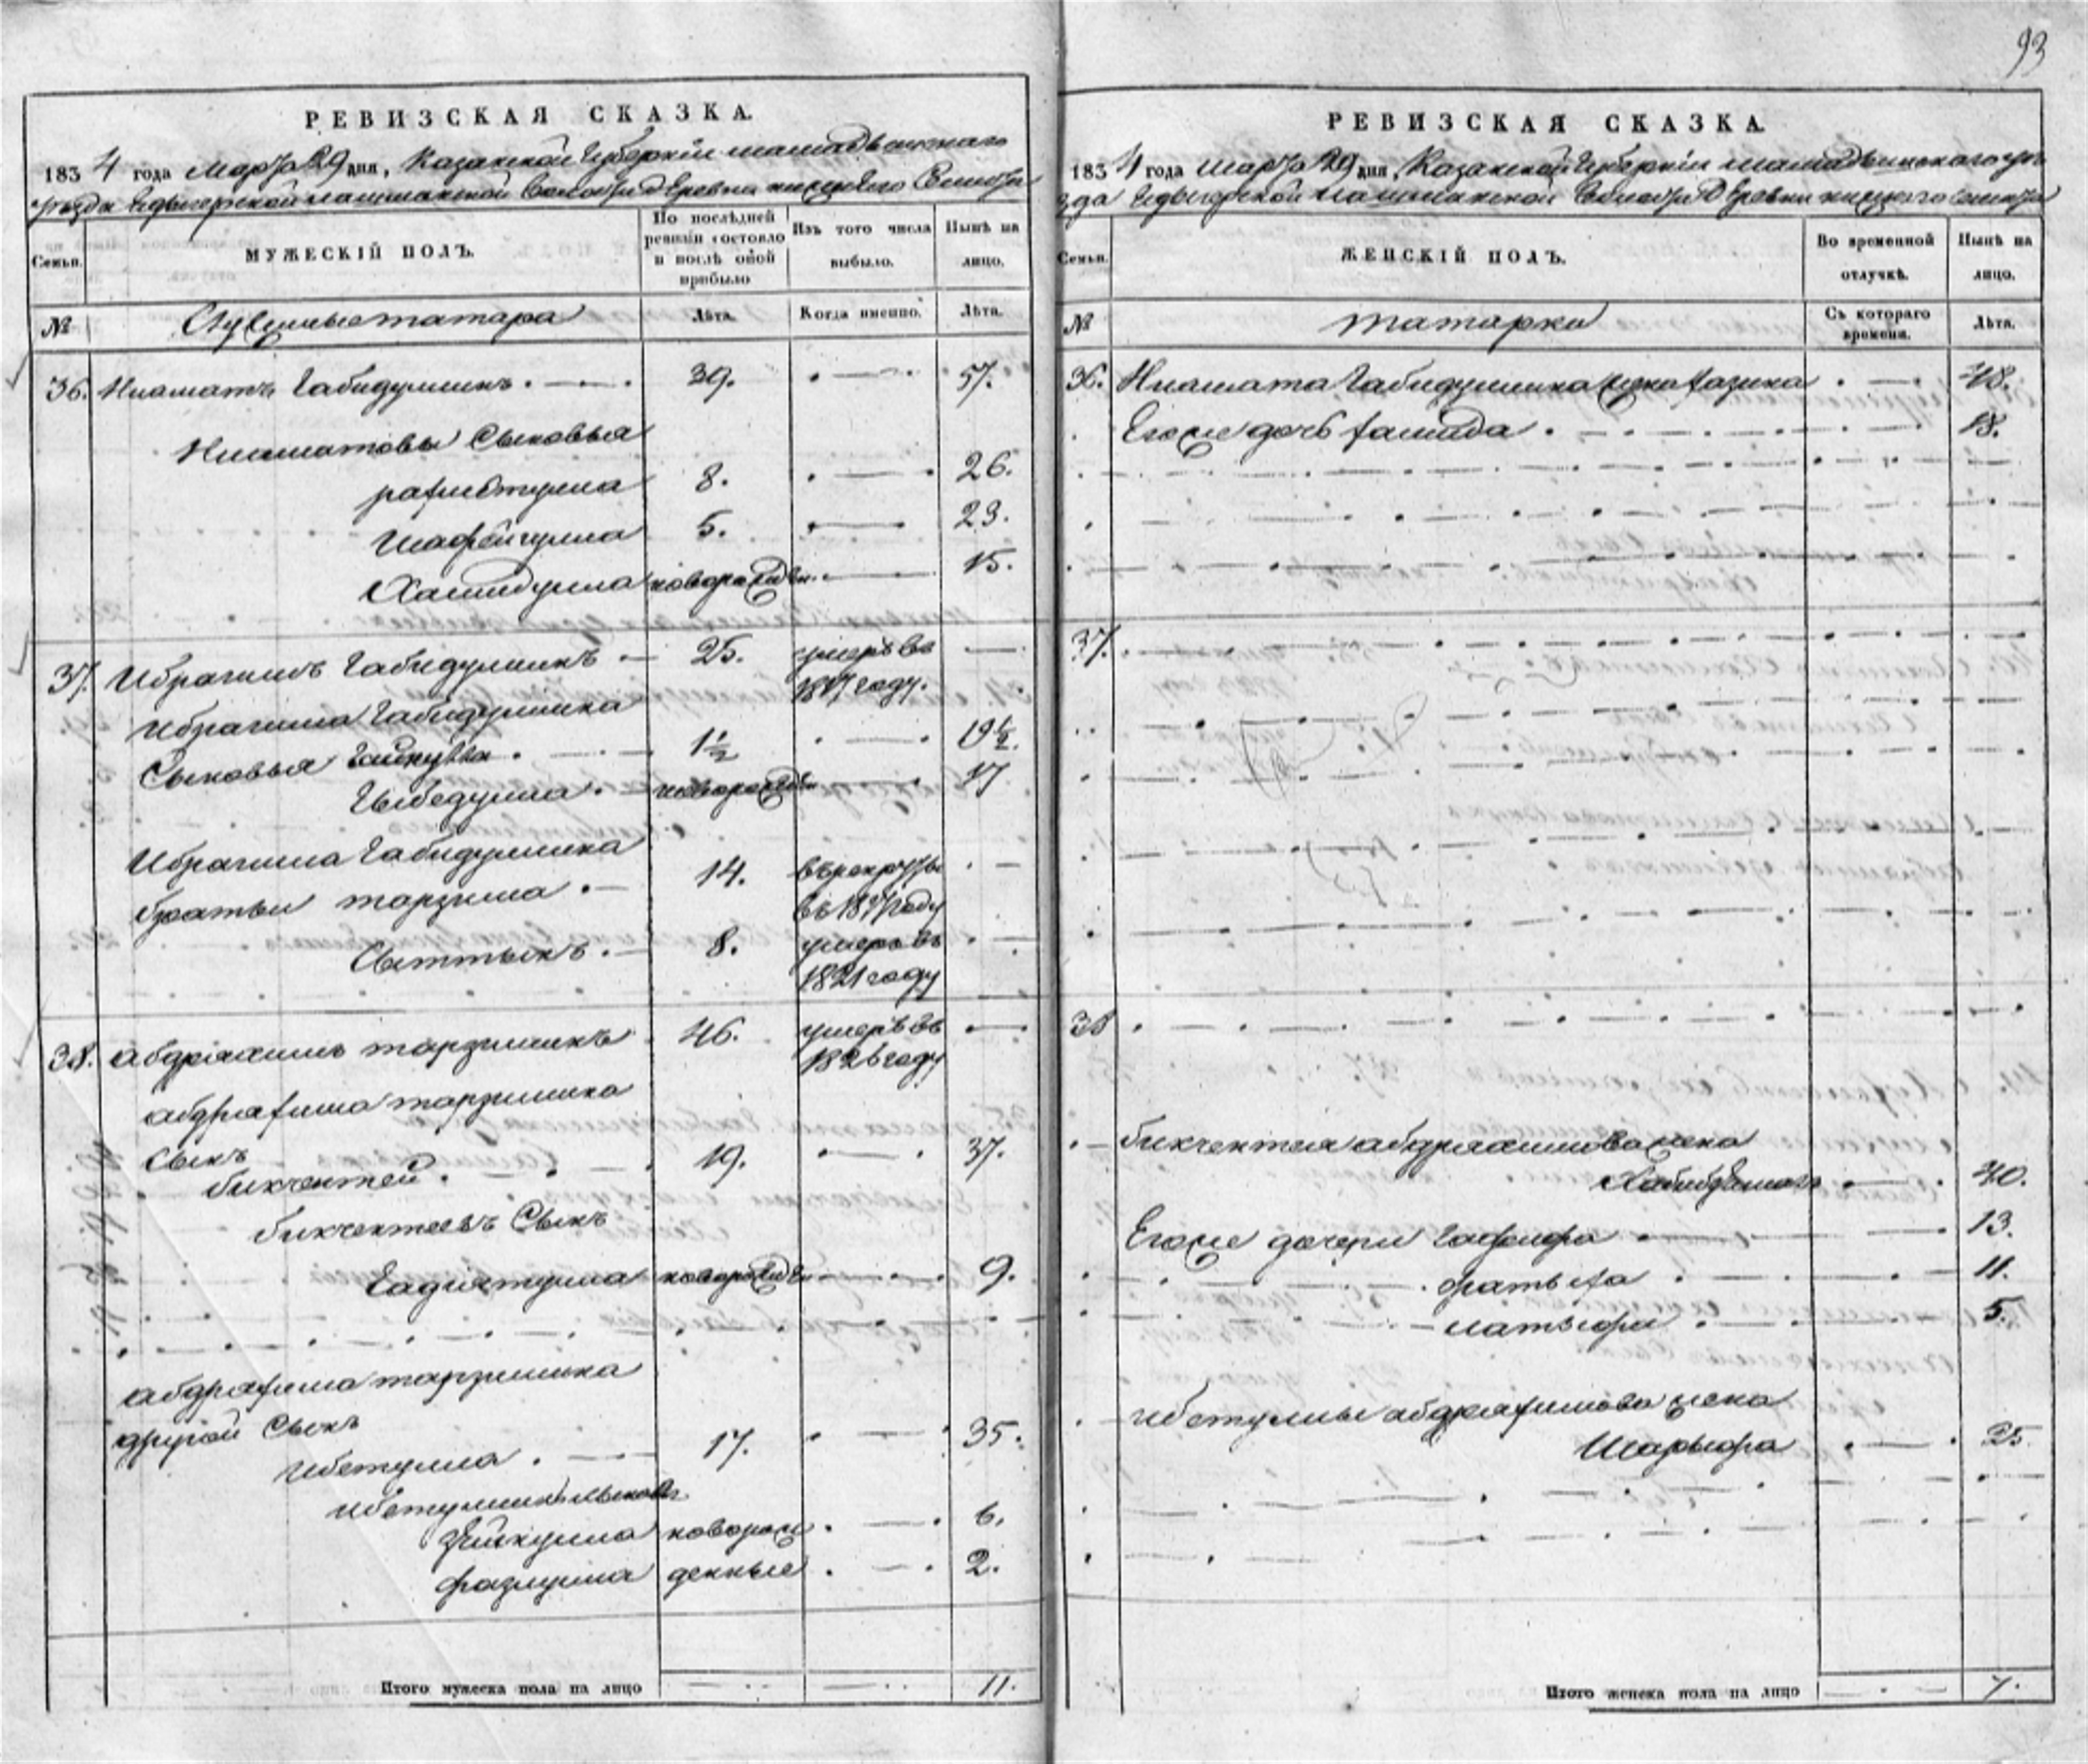 93
РЕВИЗСКАЯ СКАЗКА.
1834 года Марта 29 дня, Казанской Губернiи мамадышскаго
уѣзда волости деревни
Семьи.
МУЖЕСКIЙ ПОЛЪ.
По послѣдней ревизiи состояло и послѣ оной прибыло
Изъ того числа выбыло.
Нынѣ на лицо.
№
Служилые татара
Лѣта.
Когда именно.
Лѣта.
36. Ниаматъ Габидуллинъ . — . 39. . — . 57.
Ниаматовы Сыновья
рафиктулла 8. . — . 26.
Шафейгулла 5. . — 23.
Хамидулла новорожден. — 15.
37. Ибрагимъ Габидуллинъ . — 25. умеръ въ —
1817 году.
Ибрагима Габидуллина
Сыновья . — 1 1/2 . — . 19 1/2.
Гыбедулла . — новорожден — . 17
Ибрагима Габидуллина 14. въ рекруты . —
братьи тарзима . — въ 1817 году
Сыттыкъ . — 8. умеръ въ . —
1821 году
38. абдрахимъ тарзиминъ 46. умеръ въ . —
1826 году
абдрахима тарзимина
Сынъ
бикчентей . . — . 19. . — . 37.
бикчентеевъ Сынъ
новорожден — . 9.
абдрахима тарзимина
другой Сынъ
ибетулла . — 17. . — . 35.
ибетуллины сыновья
Зейнулла новорож . — . 6.
фазлулла денные . — . 2.
Итого мужеска пола на лицо — . . — — . . — 11.
РЕВИЗСКАЯ СКАЗКА.
1834 года Марта 29 дня, Казанской Губернiи мамадышскаго уѣ
зда волости деревни
Семьи.
ЖЕНСКIЙ ПОЛЪ.
Во временной отлучкѣ.
Нынѣ на лицо.
№
татарки
Съ котораго времени.
Лѣта.
36. Ниамата Габидуллина жена . — . 48.
Егоже дочь . — 18.
37.
38
бикчентея абдрахимова жена
. — . 40.
Егоже дочери . — 13.
. — . 11.
. — . 5.
ибетуллы абдрахимова жена
. — . 25
Итого женска пола на лицо — . — 7.